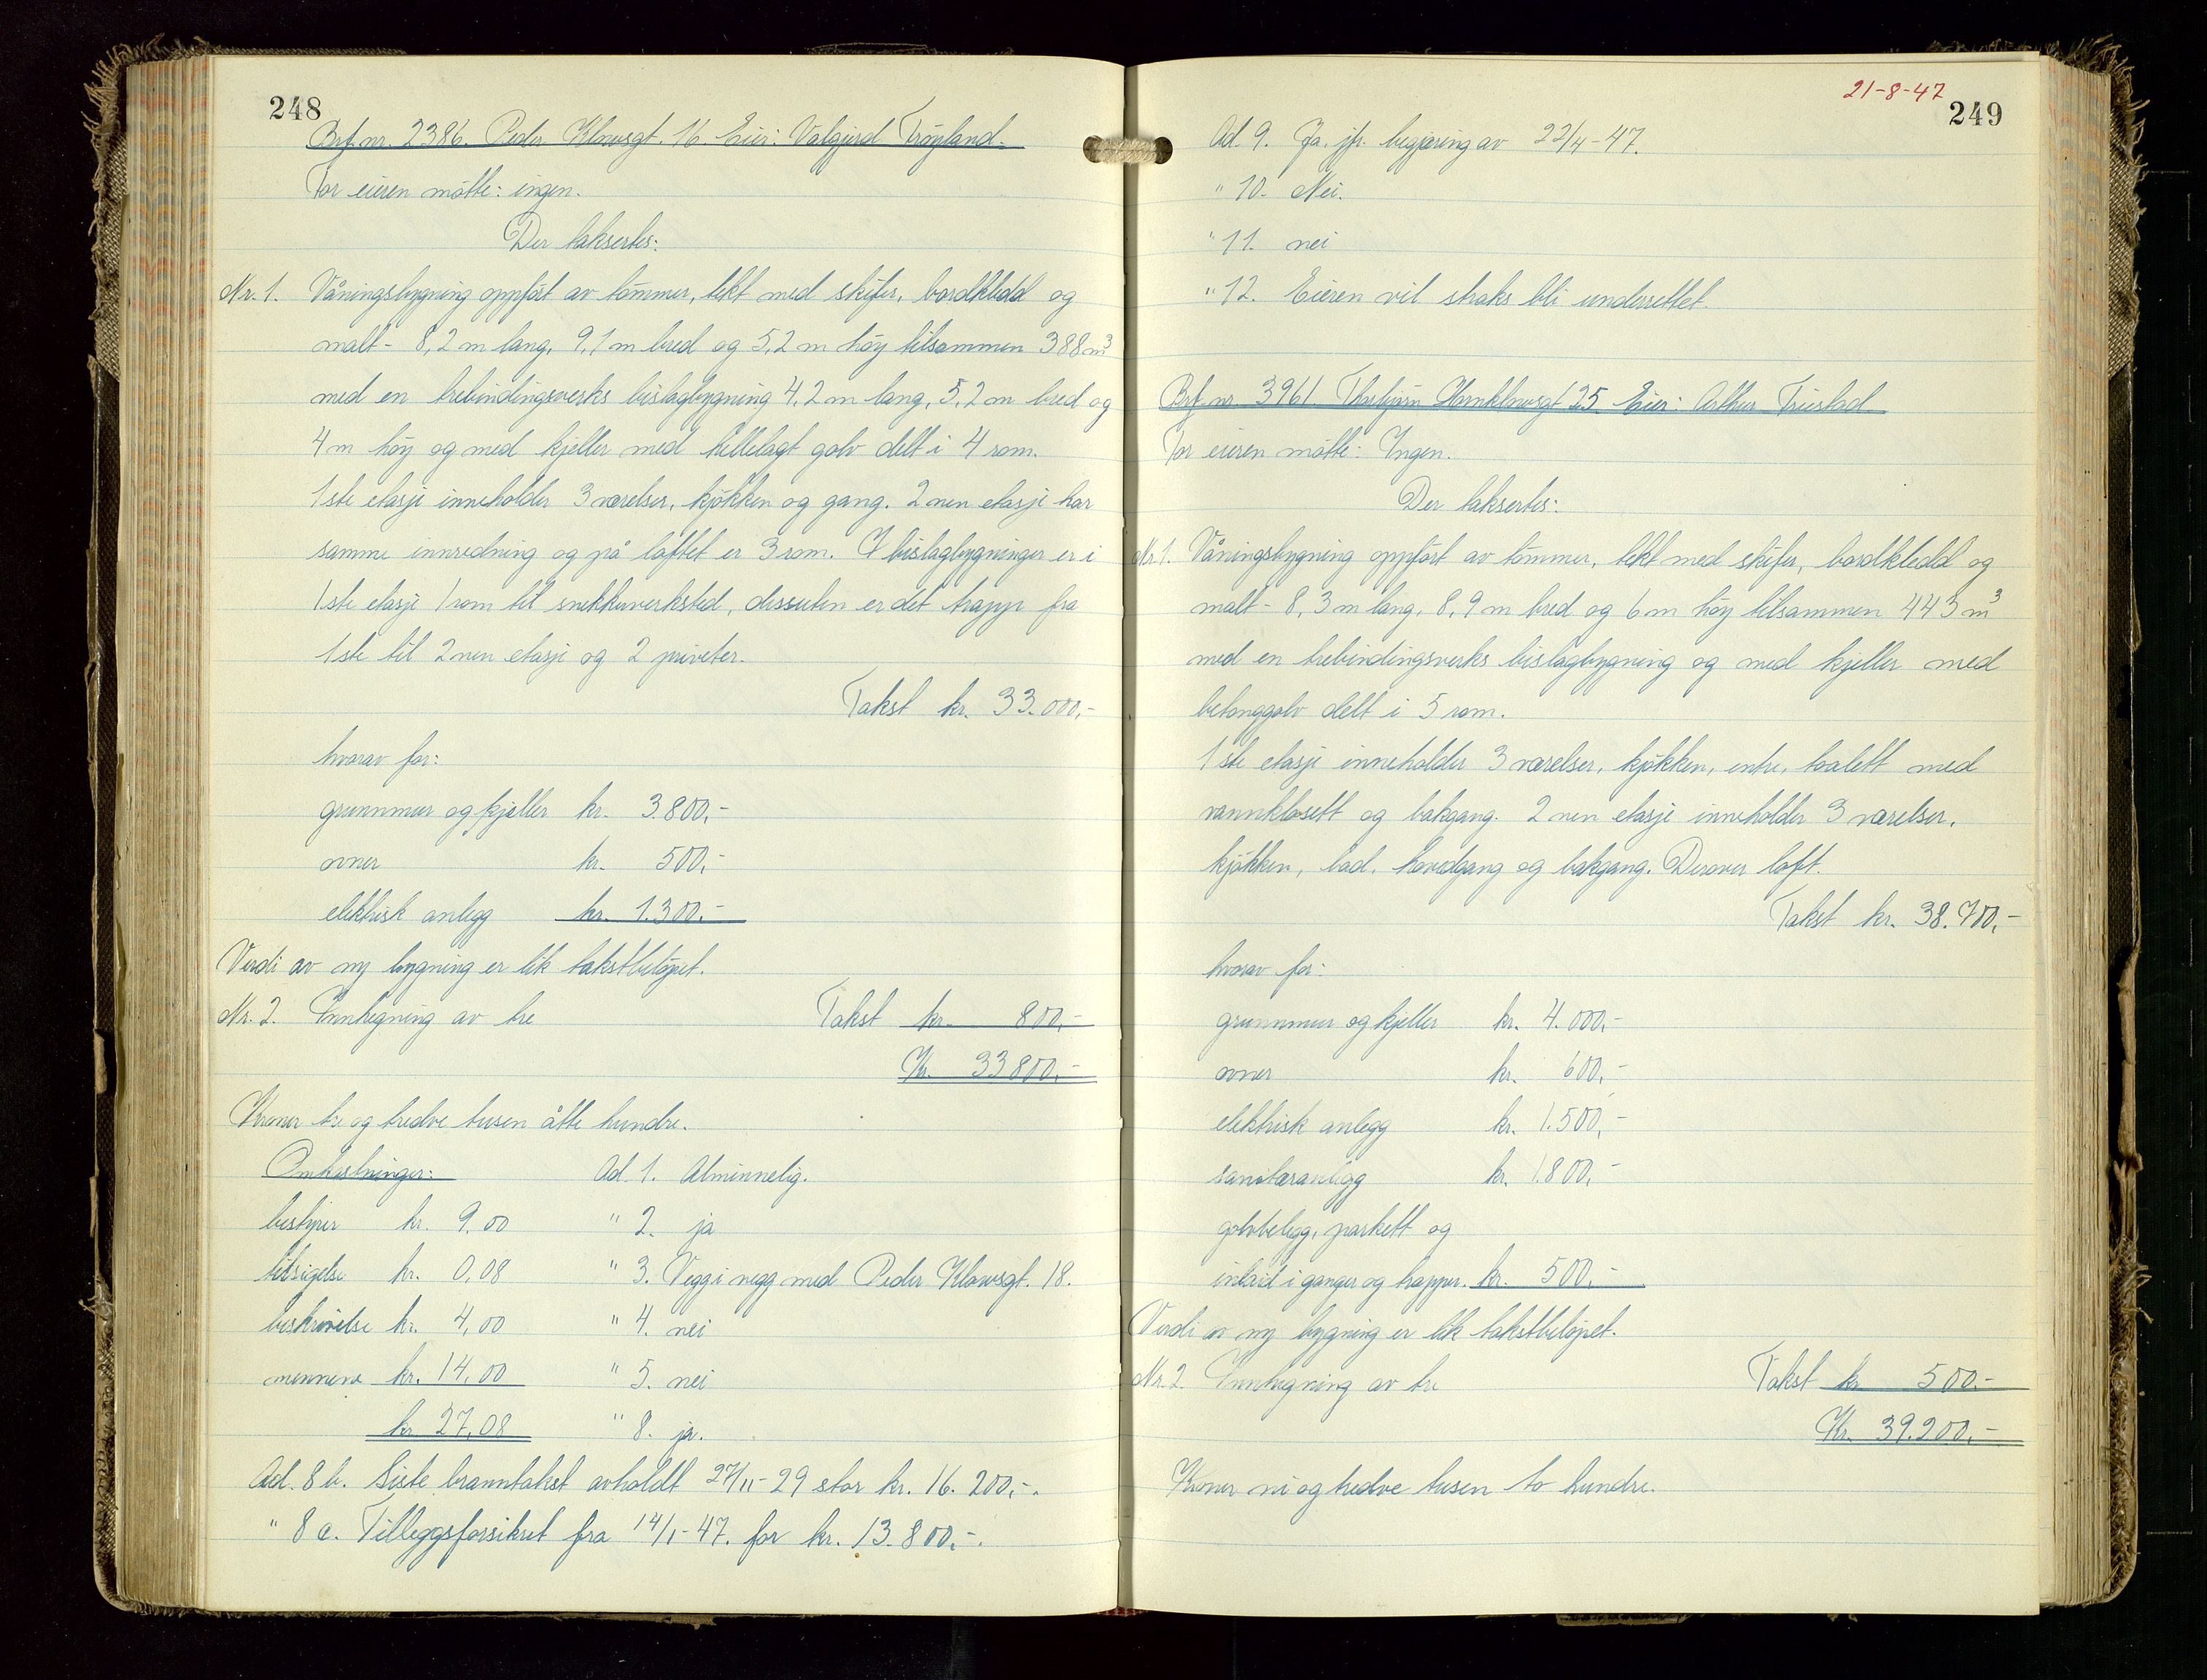 248
Brf. nr. 2386. Peder Klowsgt. 16. Eier: Valgjerd Tröyland.
For eieren møtte: ingen.
Der taksertes:
Nr. 1. Våningsbygning oppfört av tömmer, tekt med skifer, bordkledd og
malt - 8,2 m lang, 9,1 m bred og 5,2 m høy tilsammen 388 m³
med en trebindingsverks bislagbygning 4,2 m lang, 5,2 m bred og
4 m høy og med kjeller med hellelagt golv delt i 4 rom.
1ste etasje inneholder 3 værelser, kjøkken og gang. 2nen etasje har
samme innredning og på loftet er 3 rom. I bislagbygningen er i
1ste etasje 1 rom til snekkerverksted, dessuten er det trapp fra
1ste til 2nen etasje og 2 priveter.
Takst kr. 33.000,-
hvorav for:
grunnmur og kjeller kr. 3.800,-
ovner kr. 500,-
elektrisk anlegg kr. 1.300,-
Verdi av ny bygning er lik takstbeløpet.
Nr. 2. Innhegning av tre Takst kr. 800,-
Kr. 33800,-
Kroner tre og tredve tusen åtte hundre.
Omkostninger: Ad. 1. Alminnelig.
bestyrer kr. 9.00 " 2. ja
tilsigelse kr. 0,08 " 3. Vegg i vegg med Peder Klowsgt. 18.
beskrivelse kr. 4,00 " 4. nei
mennene kr. 14,00 " 5. nei
kr. 27,08 " 8. ja.
Ad. 8 b. Siste branntakst avholdt 27/11-29 stor kr. 16.200,-.
" 8 c. Tilleggsforsikret fra 14/1-47. for kr. 13.800,-.
21-8-47
249
Ad. 9. Ja. jfr. begjæring av 22/4-47.
" 10. Nei.
" 11. nei
" 12. Eieren vil straks bli underrettet.
Brf. nr. 3961. Thorbjörn Hornklowsgt 25 Eier: Arthur Friestad
For eieren møtte: Ingen.
Der taksertes:
Nr. 1. Våningsbygning oppfört av tömmer, tekt med skifer, bordkledd og
malt - 8,3 m lang, 8,9 m bred og 6 m høy tilsammen 443 m³
med en trebindingsverks bislagbygning og med kjeller med
betonggolv delt i 5 rom.
1ste etasje inneholder 3 værelser, kjøkken, entre, toalett med
vannklosett og bakgang. 2nen etasje inneholder 3 værelser,
kjøkken, bad, hovedgang og bakgang. Derover loft.
Takst kr. 38.700,-
hvorav for:
grunnmur og kjeller kr. 4.000,-
ovner kr. 600,-
elektrisk anlegg kr. 1.500,-
sanitæranlegg kr. 1.800,-
golvbelegg, parkett og
inlaid i ganger og trapper. kr. 500,-
Verdi av ny bygning er lik takstbeløpet.
Nr. 2. Innhegning av tre Takst kr 500.-
Kr. 39.200,-
Kroner ni og tredve tusen to hundre.